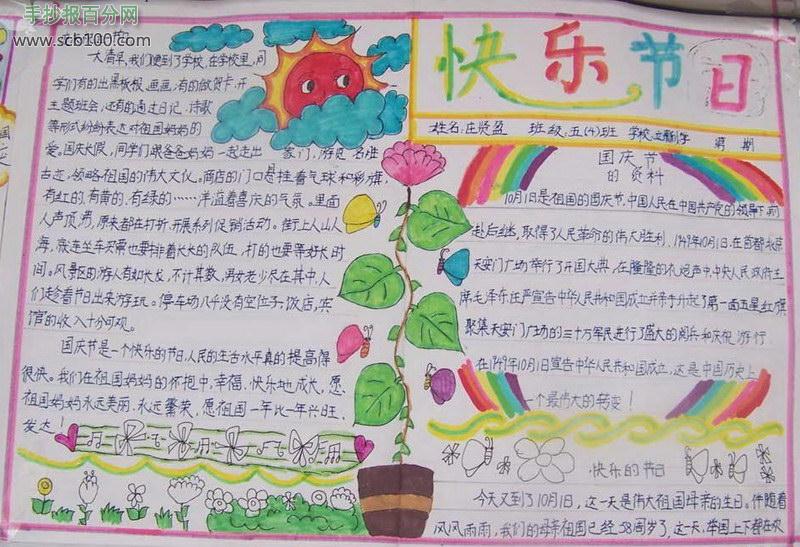 手抄报百分网
www.scb100.com
大清早,我们便到了学校,在学校里,同
学们有的出黑板报、画画,有的做贺卡、开
主题班会,还有的通过日记、诗歌
等形式纷纷表达对祖国妈妈的
爱。国庆长假,同学们跟爸爸妈妈一起走出家门,游览名胜
古迹,领略祖国的伟大文化。商店的门口悬挂着气球和彩旗,
有红的、有黄的、有绿的……洋溢着喜庆的气氛。里面
人声顶沸,原来都在打折,开展系列促销活动。街上人山人
海,就连坐车买票也要排着长长的队伍,打的也要等好长时
间。风景区的游人有如长龙,不计其数,男女老少尽在其中,人
们趁着节日出来游玩。停车场几乎没有空位子,饭店、宾
馆的收入十分可观。
国庆节是一个快乐的节日,人民的生活水平真的提高得
很快。我们在祖国妈妈的怀抱中,幸福、快乐地成长,愿
祖国妈妈永远美丽、永远繁荣,愿祖国一年比一年兴旺、
发达!
快乐节日
姓名:庄贤盈 班级:五(4)班 学校: 第 期
国庆节
的资料
10月1日是祖国的国庆节,中国人民在中国共产党的领导下,前
赴后继,取得了人民革命的伟大胜利。1949年10月1日,在首都北京
天安门广场举行了开国大典,在隆隆的礼炮声中,中央人民政府主
席毛泽东庄严宣告中华人民共和国成立并亲手升起了第一面五星红旗
聚集天安门广场的三十万军民进行了盛大的阅兵和庆祝游行
在1949年10月1日宣告中华人民共和国成立,这是中国历史上
一个最伟大的转变!
快乐的节日
今天又到了10月1日,这一天是伟大祖国母亲的生日。伴随着
风风雨雨,我们的母亲祖国已经58周岁了,这天,举国上下都在欢